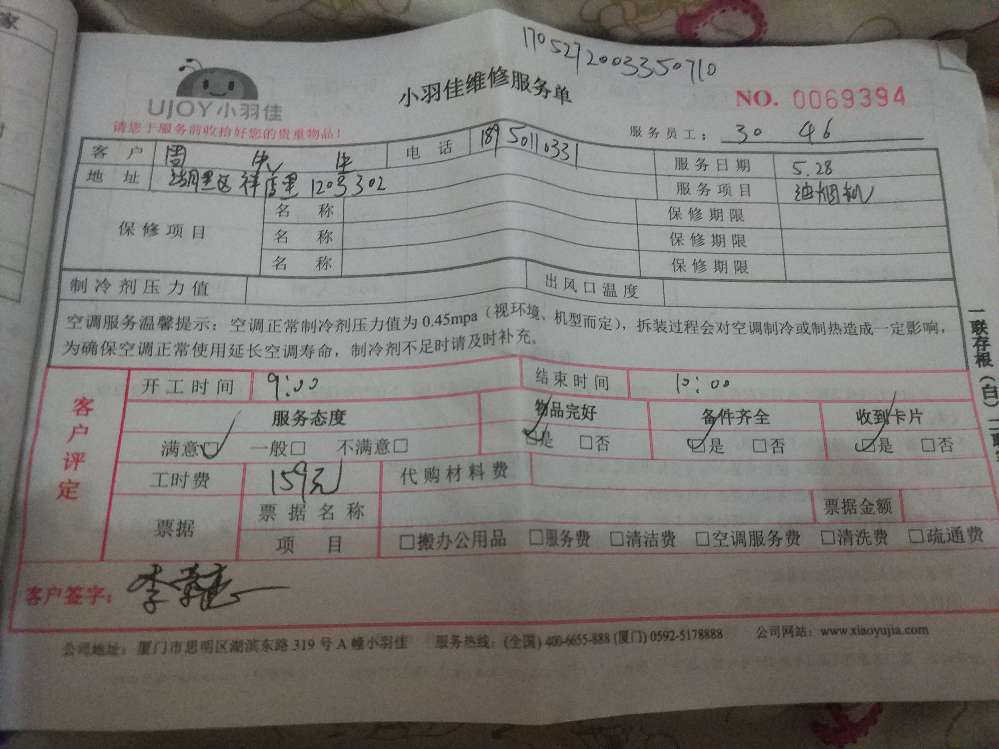 1705272003350710
UJOY小羽佳
小羽佳维修服务单
NO. 0069394
请您于服务前收拾好您的贵重物品！
服务员工： 30 46
客户 周 电话 18950110331 服务日期 5.28
地址 湖里区祥店里120号302 服务项目 油烟机
保修项目 名称 保修期限
名称 保修期限
名称 保修期限
制冷剂压力值 出风口温度
空调服务温馨提示：空调正常制冷剂压力值为0.45mpa（视环境、机型而定），拆装过程会对空调制冷或制热造成一定影响，
为确保空调正常使用延长空调寿命，制冷剂不足时请及时补充。
一联存根（白）二联
客户评定
开工时间 9:00 结束时间 10:00
服务态度 物品完好 备件齐全 收到卡片
满意☑ 一般□ 不满意□ ☑是 □否 ☑是 □否 ☑是 □否
工时费 159元 代购材料费
票据 票据名称 票据金额
项目 □搬办公用品 □服务费 □清洁费 □空调服务费 □清洗费 □疏通费
客户签字： 李
公司地址：厦门市思明区湖滨东路319号A幢小羽佳 服务热线：(全国) 400-6655-888 (厦门) 0592-5178888 公司网站：www.xiaoyujia.com